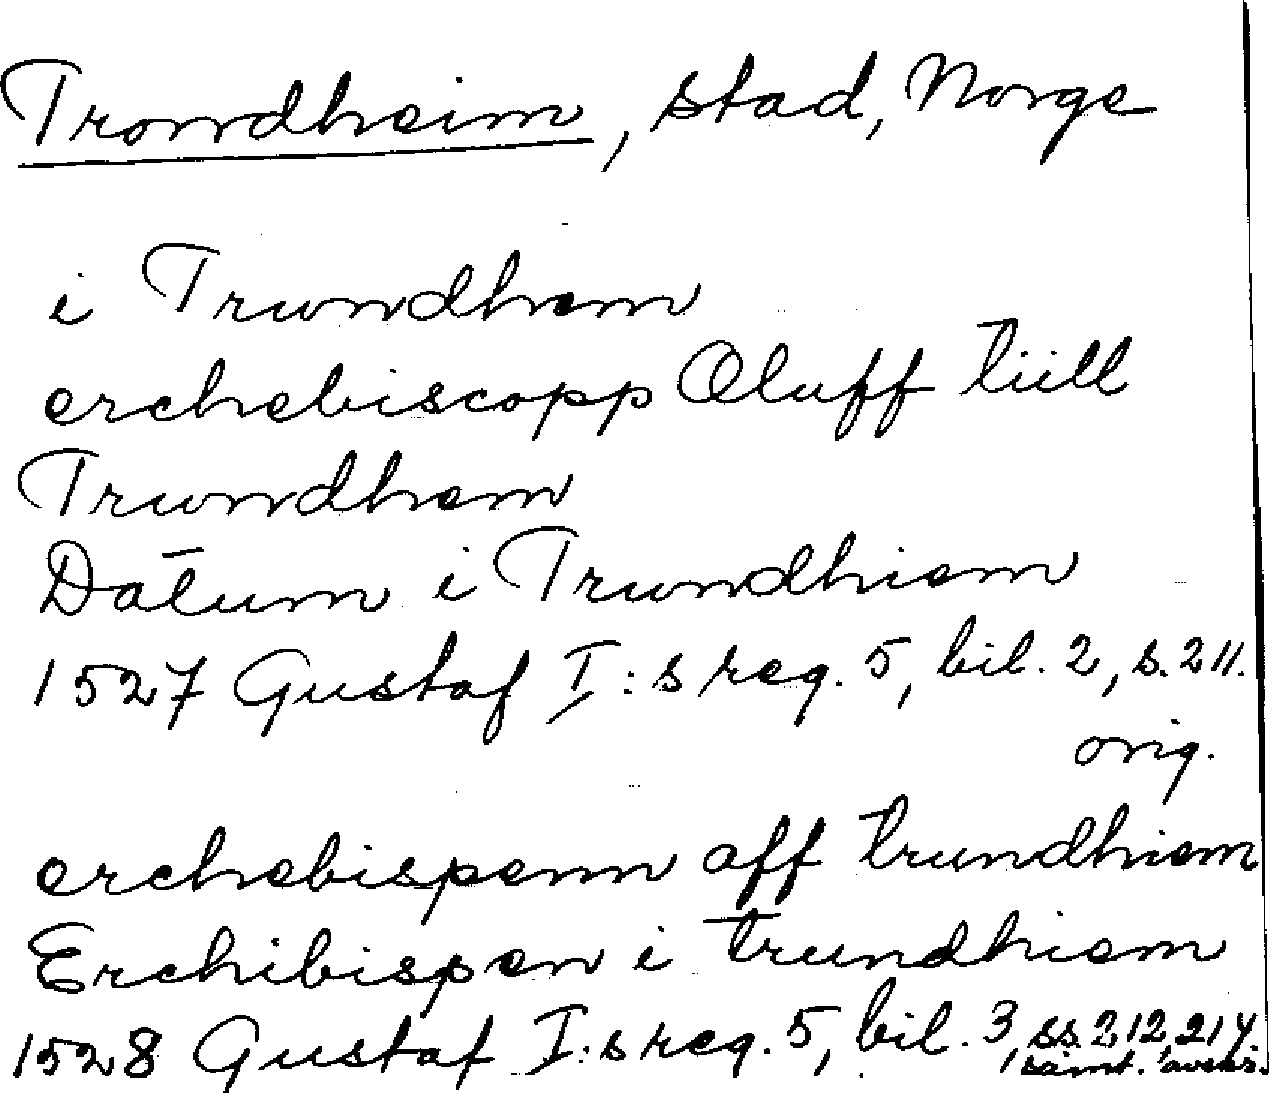 Trondheim, stad, Norge
i Trundhem
erchebiscopp Oluff tiill
Trundhem
Datum i Trundhiem
1527 Gustaf I:s reg. 5, bil. 2, s. 211.
orig.
erchebispenn aff trundhiem
Erchibispen i trundhiem
1528 Gustaf I:s reg. 5, bil. 3, ss. 212, 214.
samt.